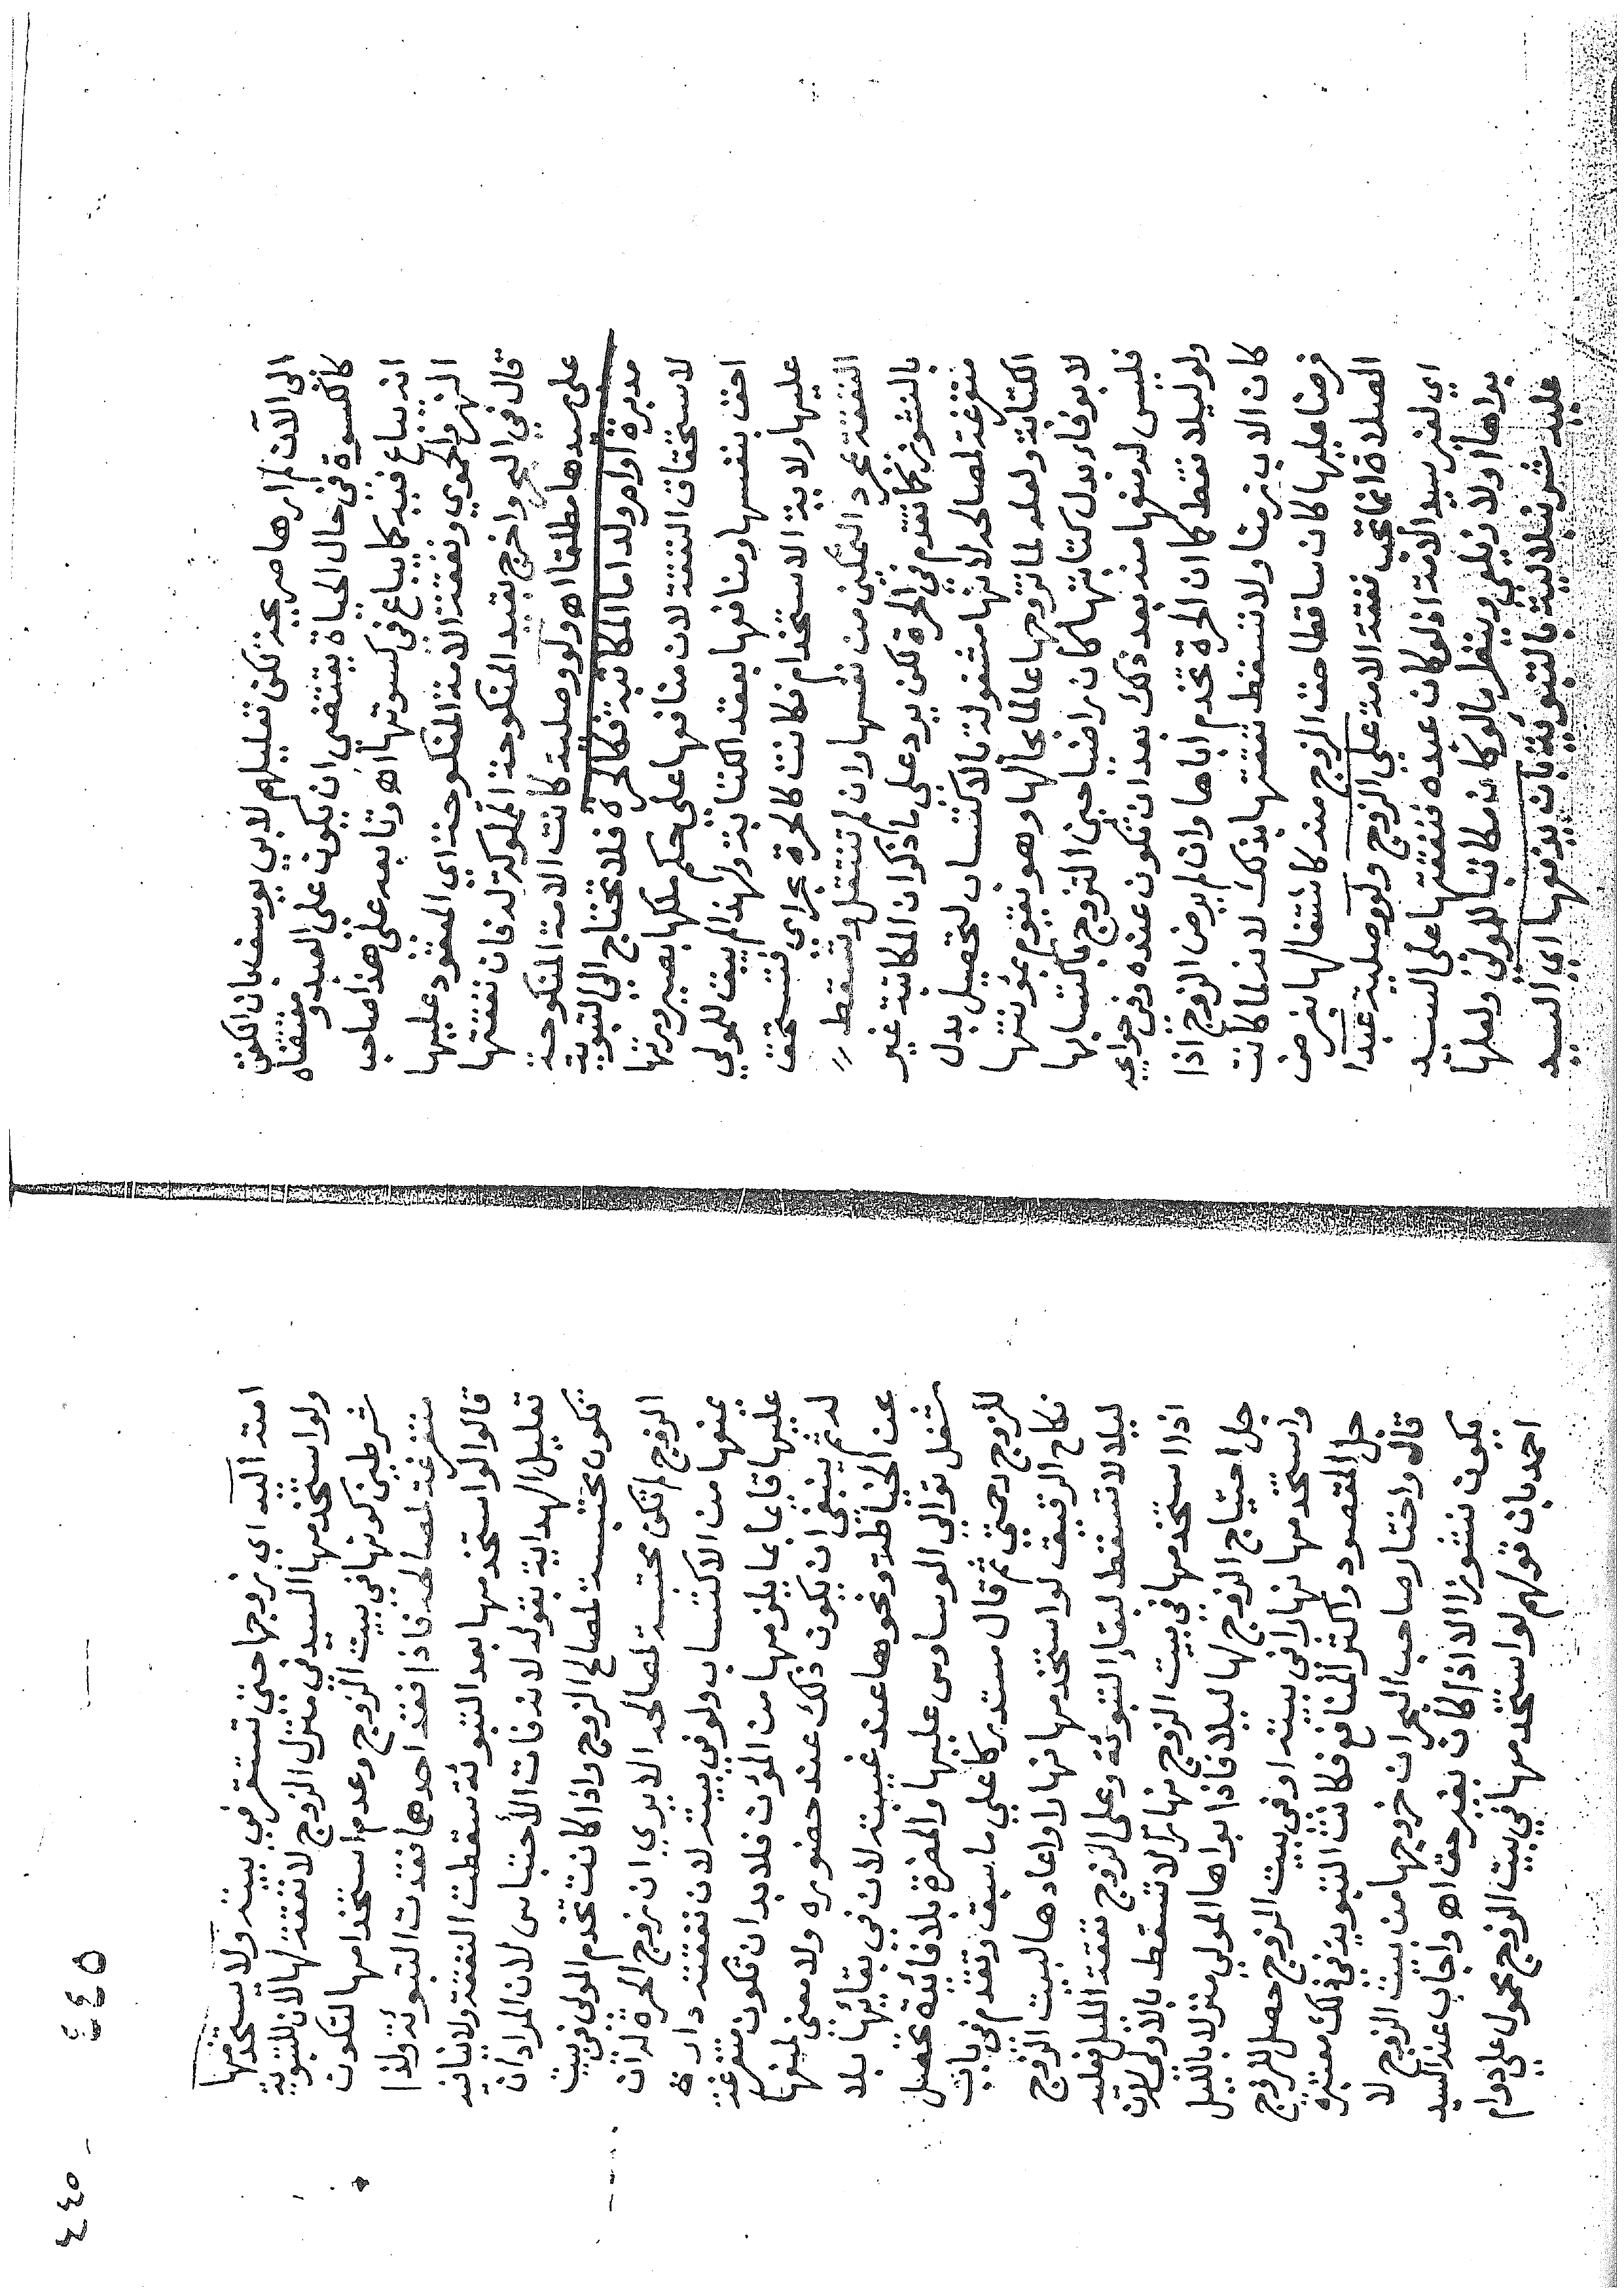 الى الآن لم ارها صريحة لكن تعليلهم لابي يوسف بان الكفن
كالكسوة في حال الحياة يقتضي ان يكون على العبد ومقتضاه
انه يباع فيه كما يباع في كسوتها اه وتابعه على هذا صاحب
النهر والحموي ونفقة الامة المنكوحة اي المعقود عليها
قال في البحر واخرج بقيد المنكوحة المملوكة له فان نفقتها
على سيدها مطلقا اه ولو وصلية كانت الامة المنكوحة
مدبرة او ام ولد اما المكاتبة فكالحرة فلا تحتاج الى التبوية
لاستحقاق النفقة لان منافعها على حكم ملكها بصيرورتها
احق بنفسها ومنافعها بعقد الكتابة ولهذا لم يبق للمولي
عليها ولاية الاستخدام فكانت كالحرة بحر اي فتستحق
النفقة بمجرد التمكين من نفسها وان لم تنتقل وتسقط
بالنشوز كما تقدم في الحرة لكن يرد على ما ذكر ان المكاتبة غير
متفرغة لمصالحه لانها مشغولة بالاكتساب لتحصيل بدل
الكتابة ولعله لما تزوجها عالما بحالها وهو يقوم بمؤنتها
لا بوفاء بدل كتابتها كان راضيا حين التزوج باكتسابها
فليس له منعها منه بعد ذلك بعد ان تكون عنده وفي حوايجه
ولو ليلا فقط كما ان الحرة تخدم اباها وان لم يرض الزوج اذا
كان الاب زمنا ولا تسقط نفقتها بذلك لانه لما كانت
فرضا عليها كان ساقطا حق الزوج منه كانتقالها بفرض
الصلاة انما تجب نفقة الامة على الزوج ولو وصلية عبدا
اي لغير سيد الامة اذ لو كان عبده فنفقتها على السيد
بواها اولا زيلعي وينظر ما لو كان مكاتبا للمولى ولعلها
عليه شرنبلالية بالتبوية بان يدفعها اي السيد
٤٤٥
٤٤٥
امته اليه اي زوجها حتى تستقر في بيته ولا يستخدمها
ولو استخدمها السيد في منزل الزوج لا نفقة لها لان للتبوية
شرطين كونها في بيت الزوج وعدم استخدامها لتكون
متفرغة لمصالحه فاذا فقد احدهما فقدت التبوئة ولذا
قالوا لو استخدمها بعد التبوئة سقطت النفقة ولا ينافيه
تعليل الهداية بقوله لانه فات الاحتباس لان المراد ان
تكون محتبسة لمصالح الزوج واذا كانت تخدم المولى في بيت
الزوج لم تكن محتبسة لمصالحه الا يري ان زوج الحرة له ان
يمنعها من الاكتساب ولو في بيته لان نفقته دارة
عليها قايما بما يلزمها من المؤن فلا بد ان تكون متفرغة
له ثم ينبغي ان يكون ذلك عند حضوره ولا معنى لمنعها
عن الخياطة ونحوها عند غيبته لان في بقائها بلا
شغل توالي الوساوس عليها والمضرة بلا فائدة تحصل
للزوج رحمتي ثم قال مستدركا علي ما سبق وتقدم في باب
نكاح الرقيق لو استخدمها نهارا واعادها لبيت الزوج
ليلا لا تسقط لبقاء التبوئة وعلى الزوج نفقة الليل فعليه
اذا استخدمها في بيت الزوج نهارا لا تسقط بالاولى لان
جل احتياج الزوج لها ليلا فاذا بواها المولى منزلا بالليل
واستخدمها نهارا في بيته او في بيت الزوج حصل للزوج
جل المقصود واكثر المنافع فكانت التبوية في ذلك معتبرة
قال واختار صاحب البحر ان خروجها من بيت الزوج لا
يكون نشوزا الا اذا كان بغير حق اه واجاب عنه السيد
احمد بان قولهم لو استخدمها في بيت الزوج محمول علي دوام